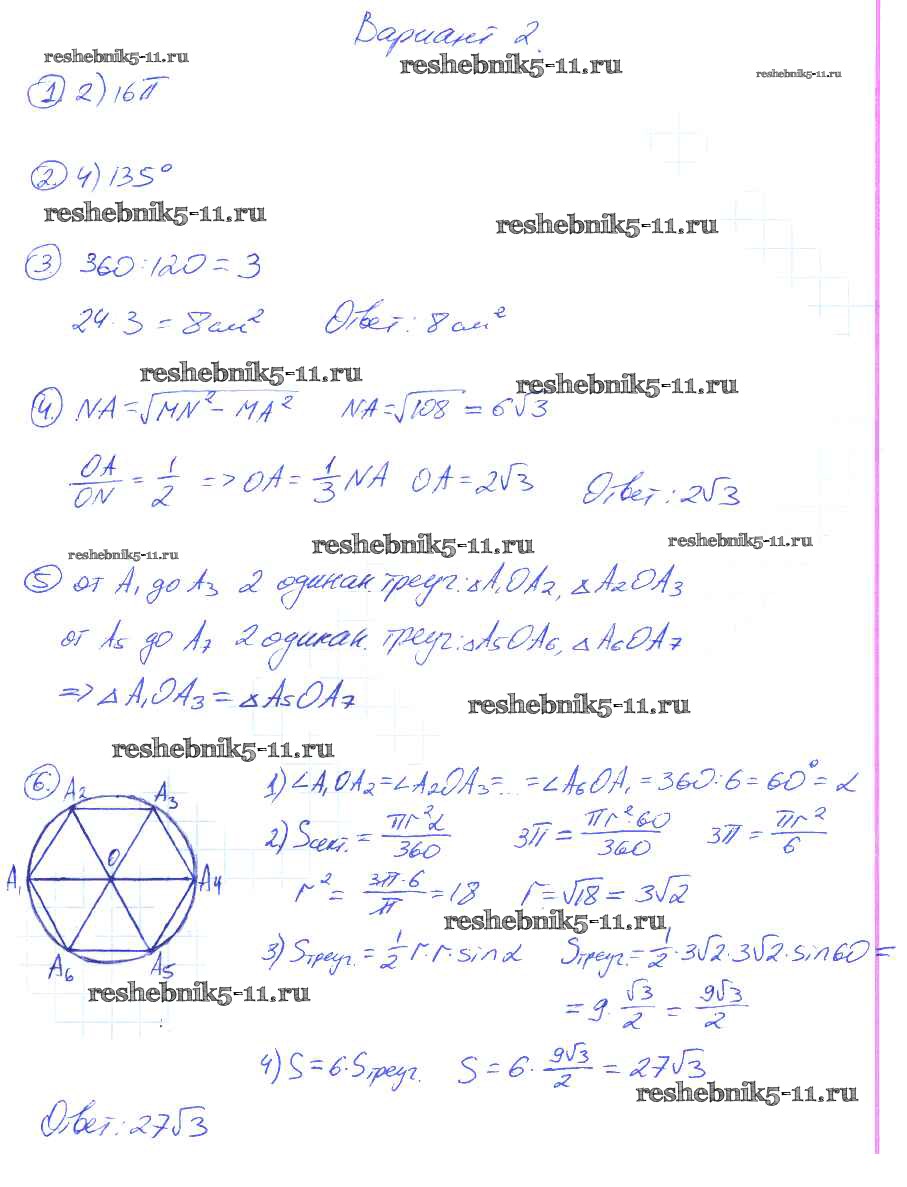 Вариант 2.
reshebnik5-11.ru
reshebnik5-11.ru
reshebnik5-11.ru
1 2) 16π
2. 4) 135°
reshebnik5-11.ru
reshebnik5-11.ru
3 360:120=3
24·3=8см² Ответ: 8см²
reshebnik5-11.ru
reshebnik5-11.ru
4. NA=√(MN²-MA²) NA=√108=6√3
OA/ON=1/2 => OA=1/3 NA OA=2√3 Ответ: 2√3
reshebnik5-11.ru
reshebnik5-11.ru
reshebnik5-11.ru
5 от A₁ до A₃ 2 одинак. треуг.: △A₁OA₂, △A₂OA₃
от A₅ до A₇ 2 одинак. треуг.: △A₅OA₆, △A₆OA₇
=> △A₁OA₃=△A₅OA₇
reshebnik5-11.ru
reshebnik5-11.ru
6. 1) ∠A₁OA₂=∠A₂OA₃=...=∠A₆OA₁=360:6=60°=α
A₂ A₃
O
A₁ A₄
A₆ A₅
2) Sсект.=πr²α/360 3π=πr²·60/360 3π=πr²/6
r²=3π·6/π=18 r=√18=3√2
reshebnik5-11.ru
3) Sтреуг.=1/2 r·r·sinα Sтреуг.=1/2·3√2·3√2·sin60=
reshebnik5-11.ru
=9·√3/2=9√3/2
4) S=6·Sтреуг. S=6·9√3/2=27√3
reshebnik5-11.ru
Ответ: 27√3